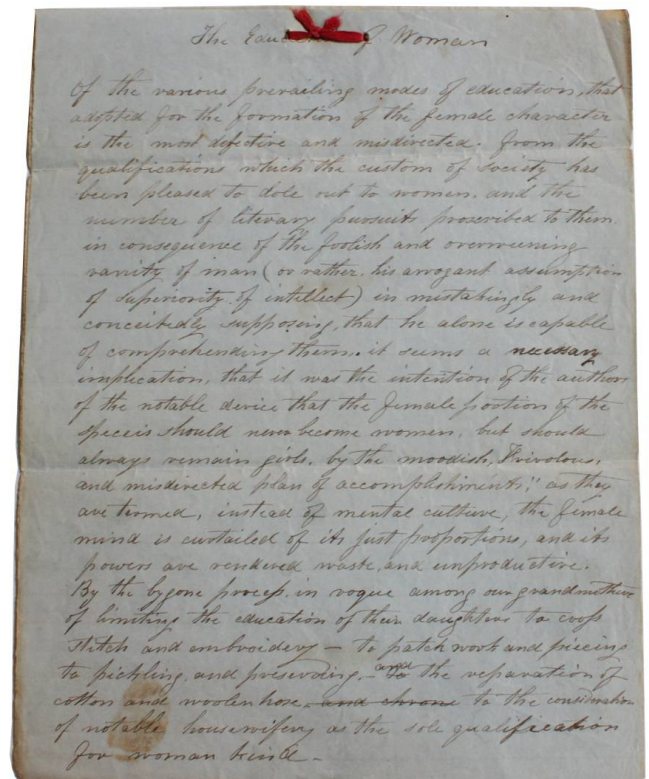 The Education of Woman
Of the various prevailing modes of education, that
adopted for the formation of the female character
is the most defective and misdirected. From the
qualifications which the custom of society has
been pleased to dole out to women, and the
number of literary pursuits proscribed to them
in consequence of the foolish and overweening
vanity of man (or rather his arrogant assumption
of superiority of intellect) in mistakingly and
conceitedly supposing, that he alone is capable
of comprehending them, it seems a necessary
implication, that it was the intention of the authors
of the notable device that the female portion of the
speceis should never become women, but should
always remain girls, by the moodish, Frivolous,
and misdirected plan of accomplishments," as they
are termed, instead of mental culture, the female
mind is curtailed of its just proportions, and its
powers are rendered waste, and unproductive.
By the bygone process, in vogue among our grandmothers
of limiting the education of their daughters to cross
stitch and embroidery – to patch work and piecing
to pickling, and preserving, – and to the reparation of
cotton and woolen hose, and chrone to the consideration
of notable housewifery as the sole qualification
for woman kind –